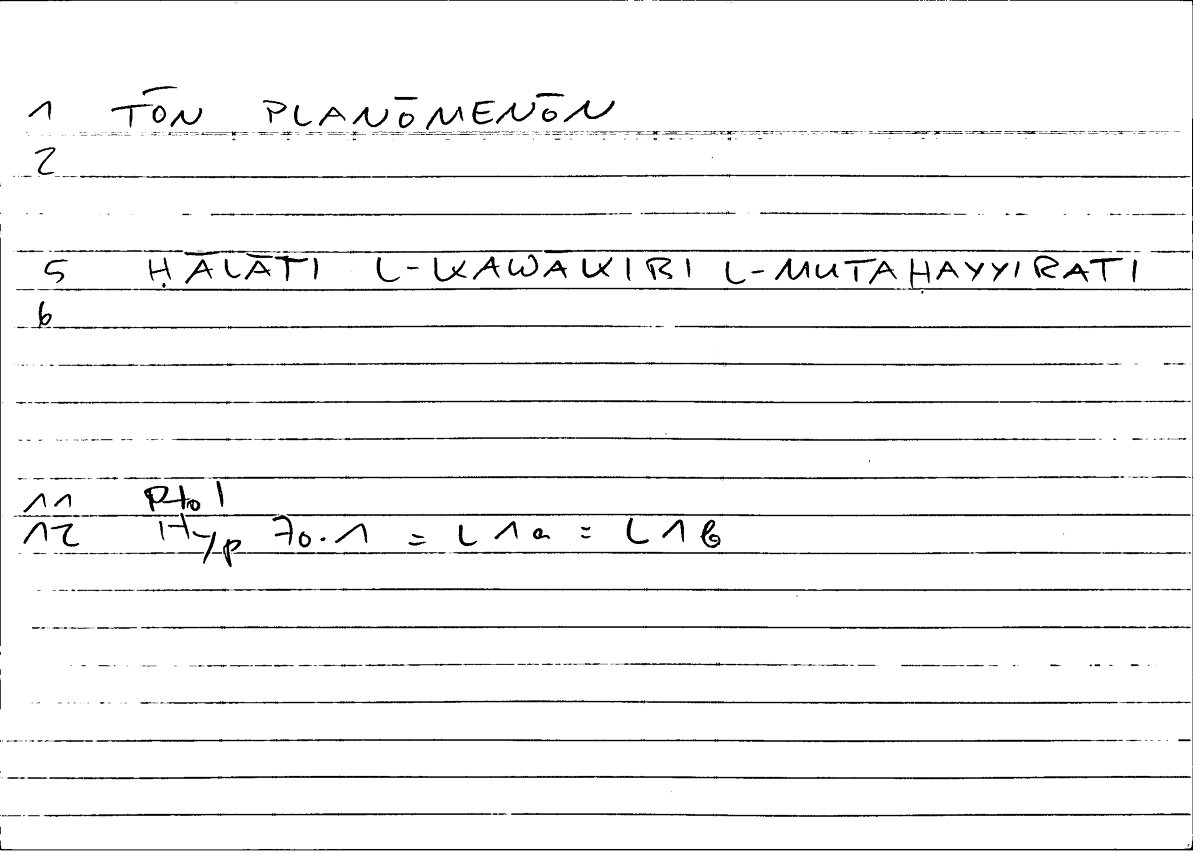 1 TŌN PLANŌMENŌN
2
5 ḤĀLĀTI L-KAWĀKIBI L-MUTAḤAYYIRATI
6
11 Ptol
12 Hyp 70.1 = L 1a = L 1b